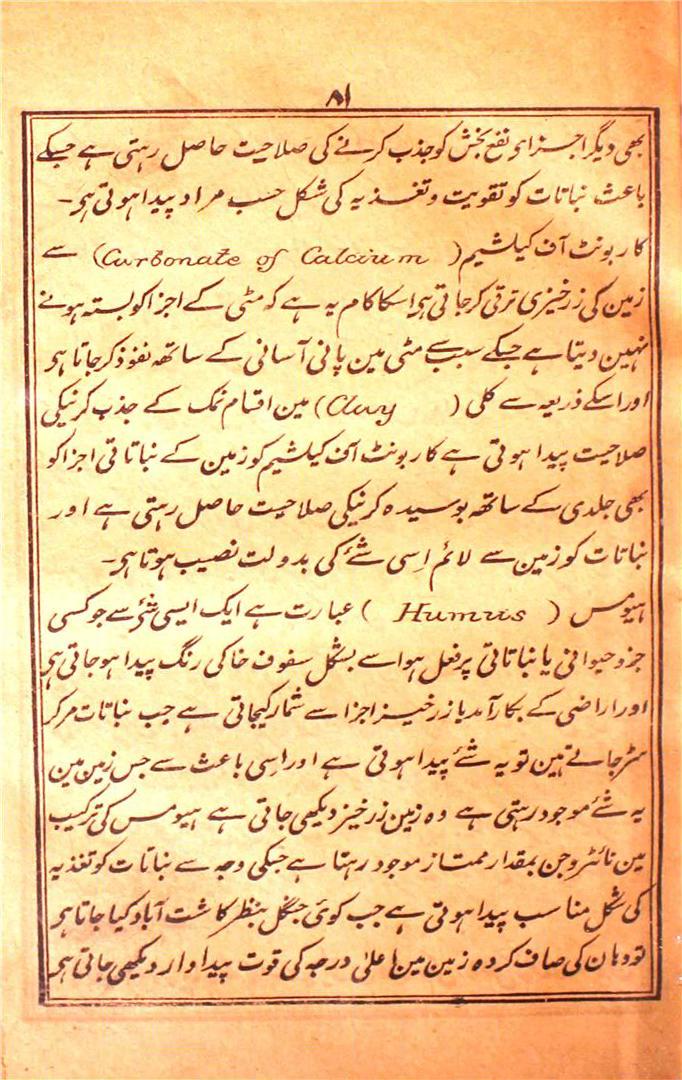 ۸۱
بھی دیگر اجزای نفع بخش کو جذب کرنے کی صلاحیت حاصل رہتی ہے جسکے
باعث نباتات کو تقویت و تغذیہ کی شکل حسب مراد پیدا ہوتی ہی۔
کاربونٹ آف کیلشیم (Carbonate of Calcium) سے
زمین کی زرخیزی ترقی کرجاتی ہی اسکا کام یہ ہے کہ مٹی کے اجزا کو بستہ ہونے
نہین دیتا ہے جسکے سبب سے مٹی مین پانی آسانی کے ساتھ نفوذ کرجاتا ہی
اور اسکے ذریعہ سے کلی (Clay) مین اقسام نمک کے جذب کرنیکی
صلاحیت پیدا ہوتی ہے کاربونٹ آف کیلشیم کو زمین کے نباتاتی اجزا کو
بھی جلدی کے ساتھ بوسیدہ کرنیکی صلاحیت حاصل رہتی ہے اور
نباتات کو زمین سے لائم اِسی شئے کی بدولت نصیب ہوتا ہی۔
ہیومس (Humus) عبارت ہے ایک ایسی شئ سے جو کسی
جزو حیوانی یا نباتاتی پر فعل ہوا سے بشکل سفوف خاکی رنگ پیدا ہوجاتی ہی
اور اراضی کے بکار آمد یا زرخیز اجزا سے شمار کیجاتی ہے جب نباتات مرکر
سڑجاتے ہین تو یہ شئے پیدا ہوتی ہے اور اِسی باعث سے جس زمین مین
یہ شئے موجود رہتی ہے وہ زمین زرخیز دیکھی جاتی ہے ہیومس کی ترکیب
مین نائٹروجن بمقدار ممتاز موجود رہتا ہے جسکی وجہ سے نباتات کو تغذیہ
کی شکل مناسب پیدا ہوتی ہے جب کوئی جنگل بنظر کاشت آباد کیا جاتا ہی
تو وہان کی صاف کردہ زمین مین اعلیٰ درجہ کی قوت پیداوار دیکھی جاتی ہی